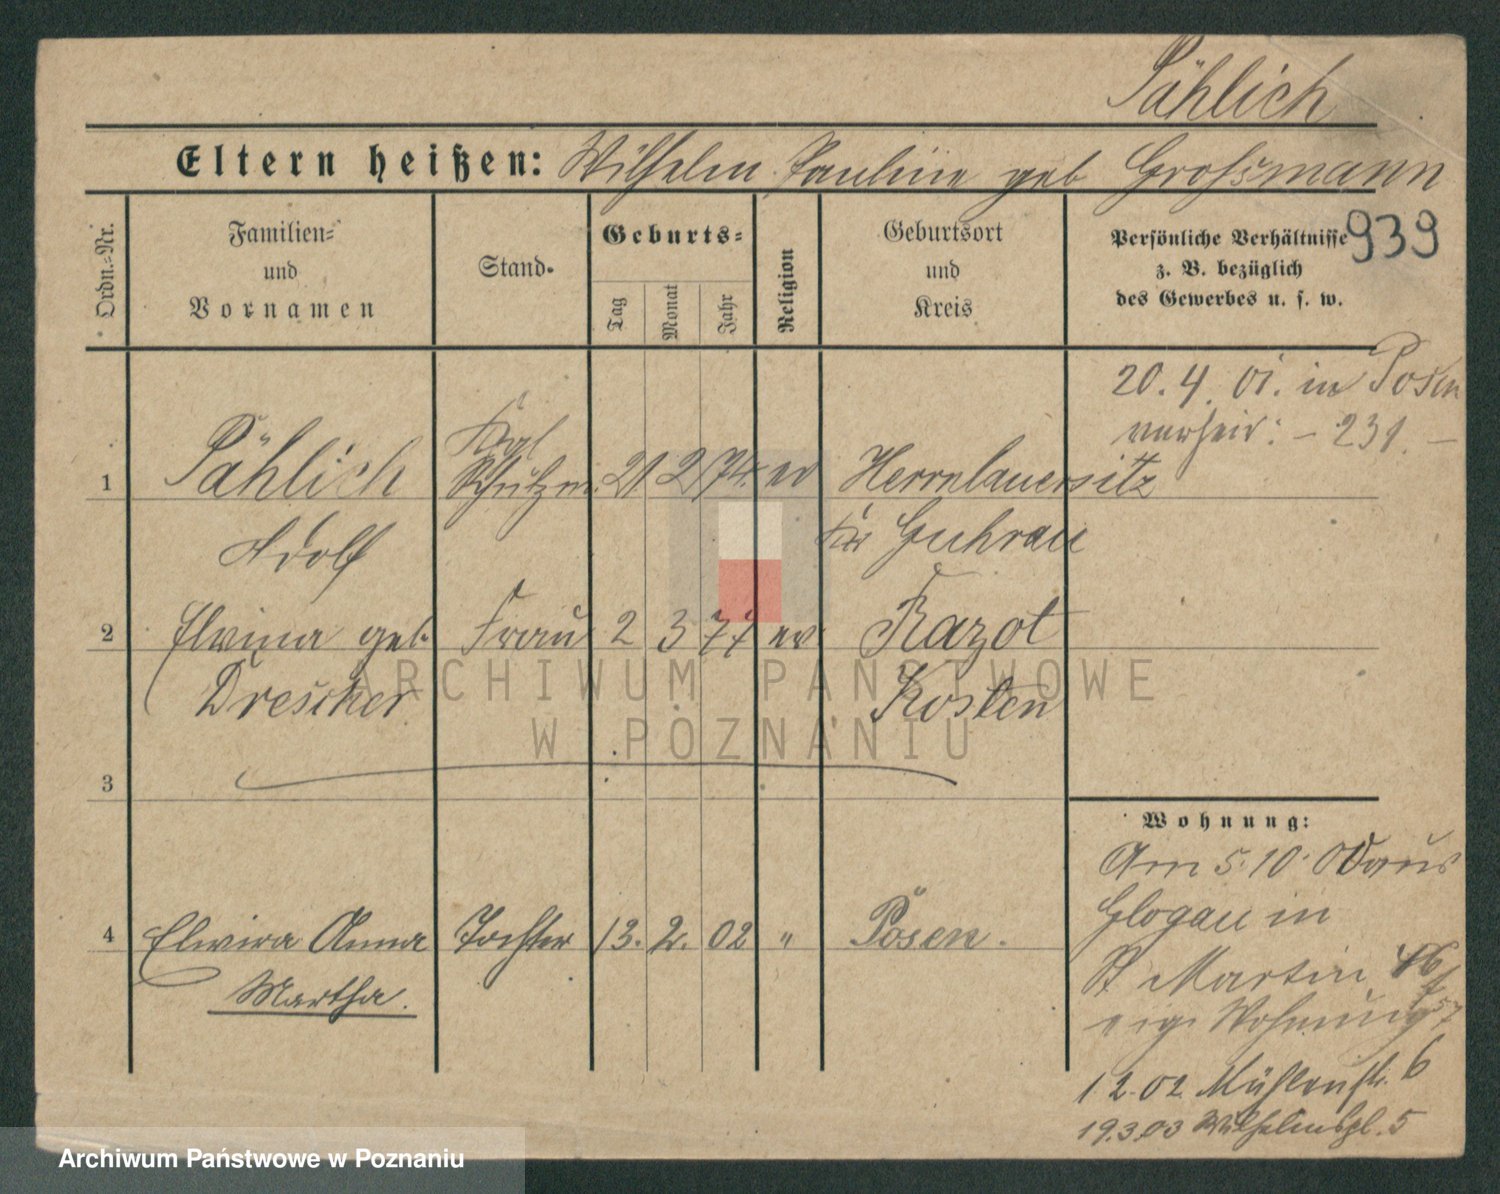 Pählich
Eltern heißen: Wilhelm Pauline geb Grossmann
939
Ordn.-Nr.
Familien- und Vornamen
Stand.
Geburts-
Tag
Monat
Jahr
Religion
Geburtsort und Kreis
Persönliche Verhältnisse
z. B. bezüglich
des Gewerbes u. s. w.
20.4.01. in Posen
verheir: – 231. –
1 Pählich Kgl Schutzm. 21 2 74 ev Herrnlauersitz
Adolf Kr Guhrau
2 Elvina geb. Frau 2 3 77 ev Razot
Drescher Kosten
3
4 Elwira Anna Tochter 13. 2. 02 " Posen.
Martha.
Wohnung:
Am 5.10.00 aus
Glogau in
St Martin 46
eig. Wohnung 57
1.2.02 Mühlenstr. 6
19.3.03 Wilhelmspl. 5
ARCHIWUM PAŃSTWOWE
W POZNANIU
Archiwum Państwowe w Poznaniu